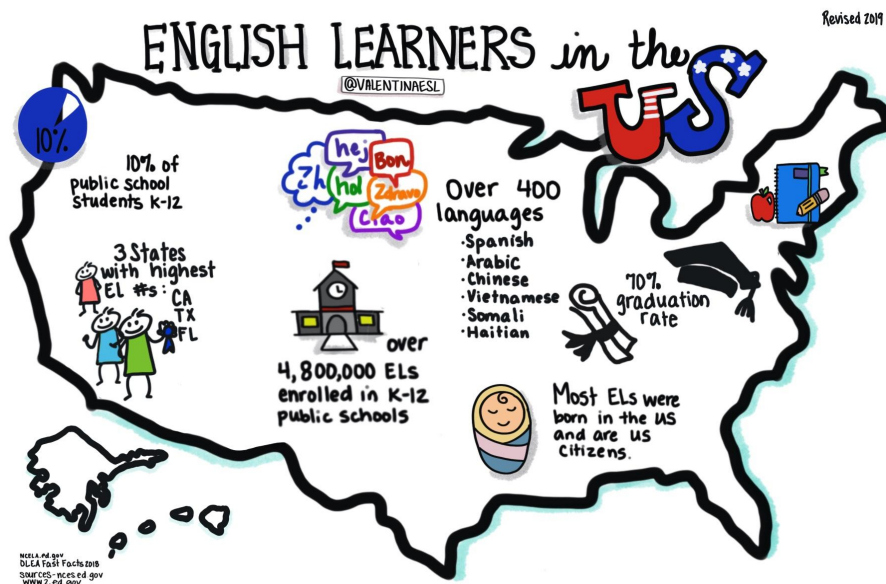 Revised 2019
ENGLISH LEARNERS in the US
@VALENTINAESL
10%
10% of
public school
students K-12
hej
Bon
Zh
hol
Zdravo
Ciao
Over 400
languages
·Spanish
·Arabic
·Chinese
·Vietnamese
·Somali
·Haitian
3 States
with highest
EL #s: CA
TX
FL
over
4,800,000 ELs
enrolled in K-12
public schools
70%
graduation
rate
Most ELs were
born in the US
and are US
Citizens.
NCELA.ed.gov
OLEA Fast Facts 2018
sources-nces.ed.gov
WWW2.ed.gov